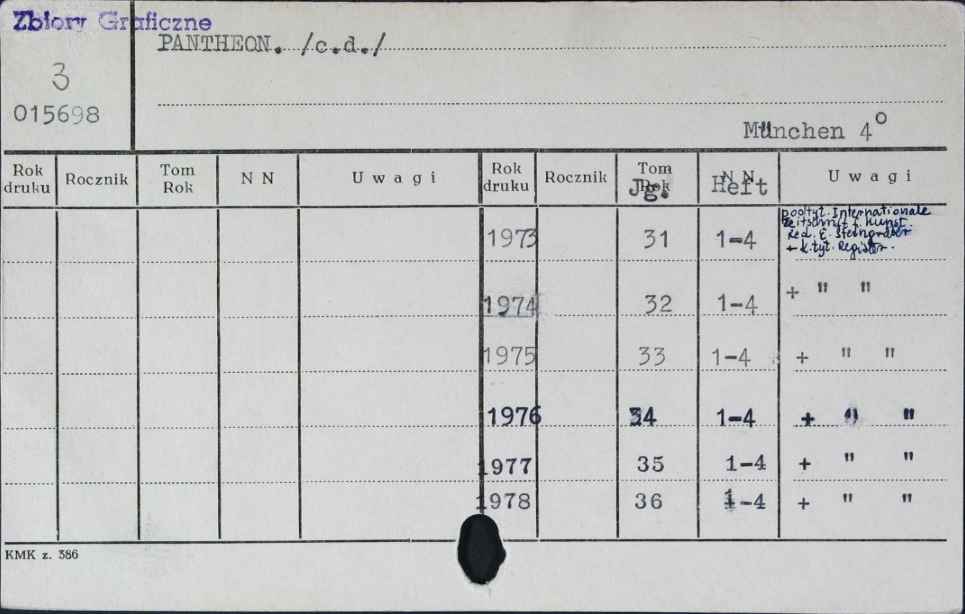 Zbiory Graficzne
PANTHEON. /c.d./
3
015698
München 4°
Rok druku Rocznik Tom Rok N N Uwagi Rok druku Rocznik Tom Rok N N Uwagi
Jg. Heft
1973 31 1-4 podtyt. Internationale
Zeitschrift f. Kunst.
Red. E. Steingräber
+ k.tyt. Register.
1974 32 1-4 + " "
1975 33 1-4 + " "
1976 34 1-4 + " "
1977 35 1-4 + " "
1978 36 1-4 + " "
KMK z. 386